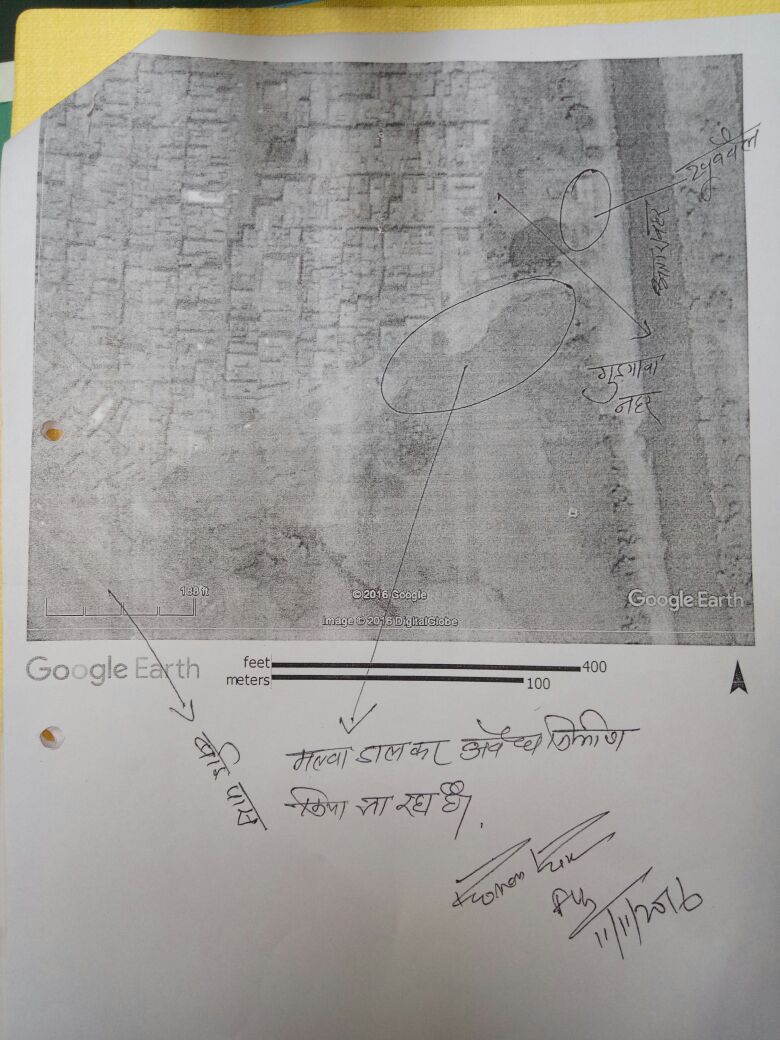 ट्युबवैल
आगरा नहर
गुड़गावा
नहर
188 ft
© 2016 Google
Image © 2016 DigitalGlobe
Google Earth
Google Earth
feet 400
meters 100
बाई पास
मलवा डालकर अवैध्य निर्माण
किया जा रहा है।
11/11/2016